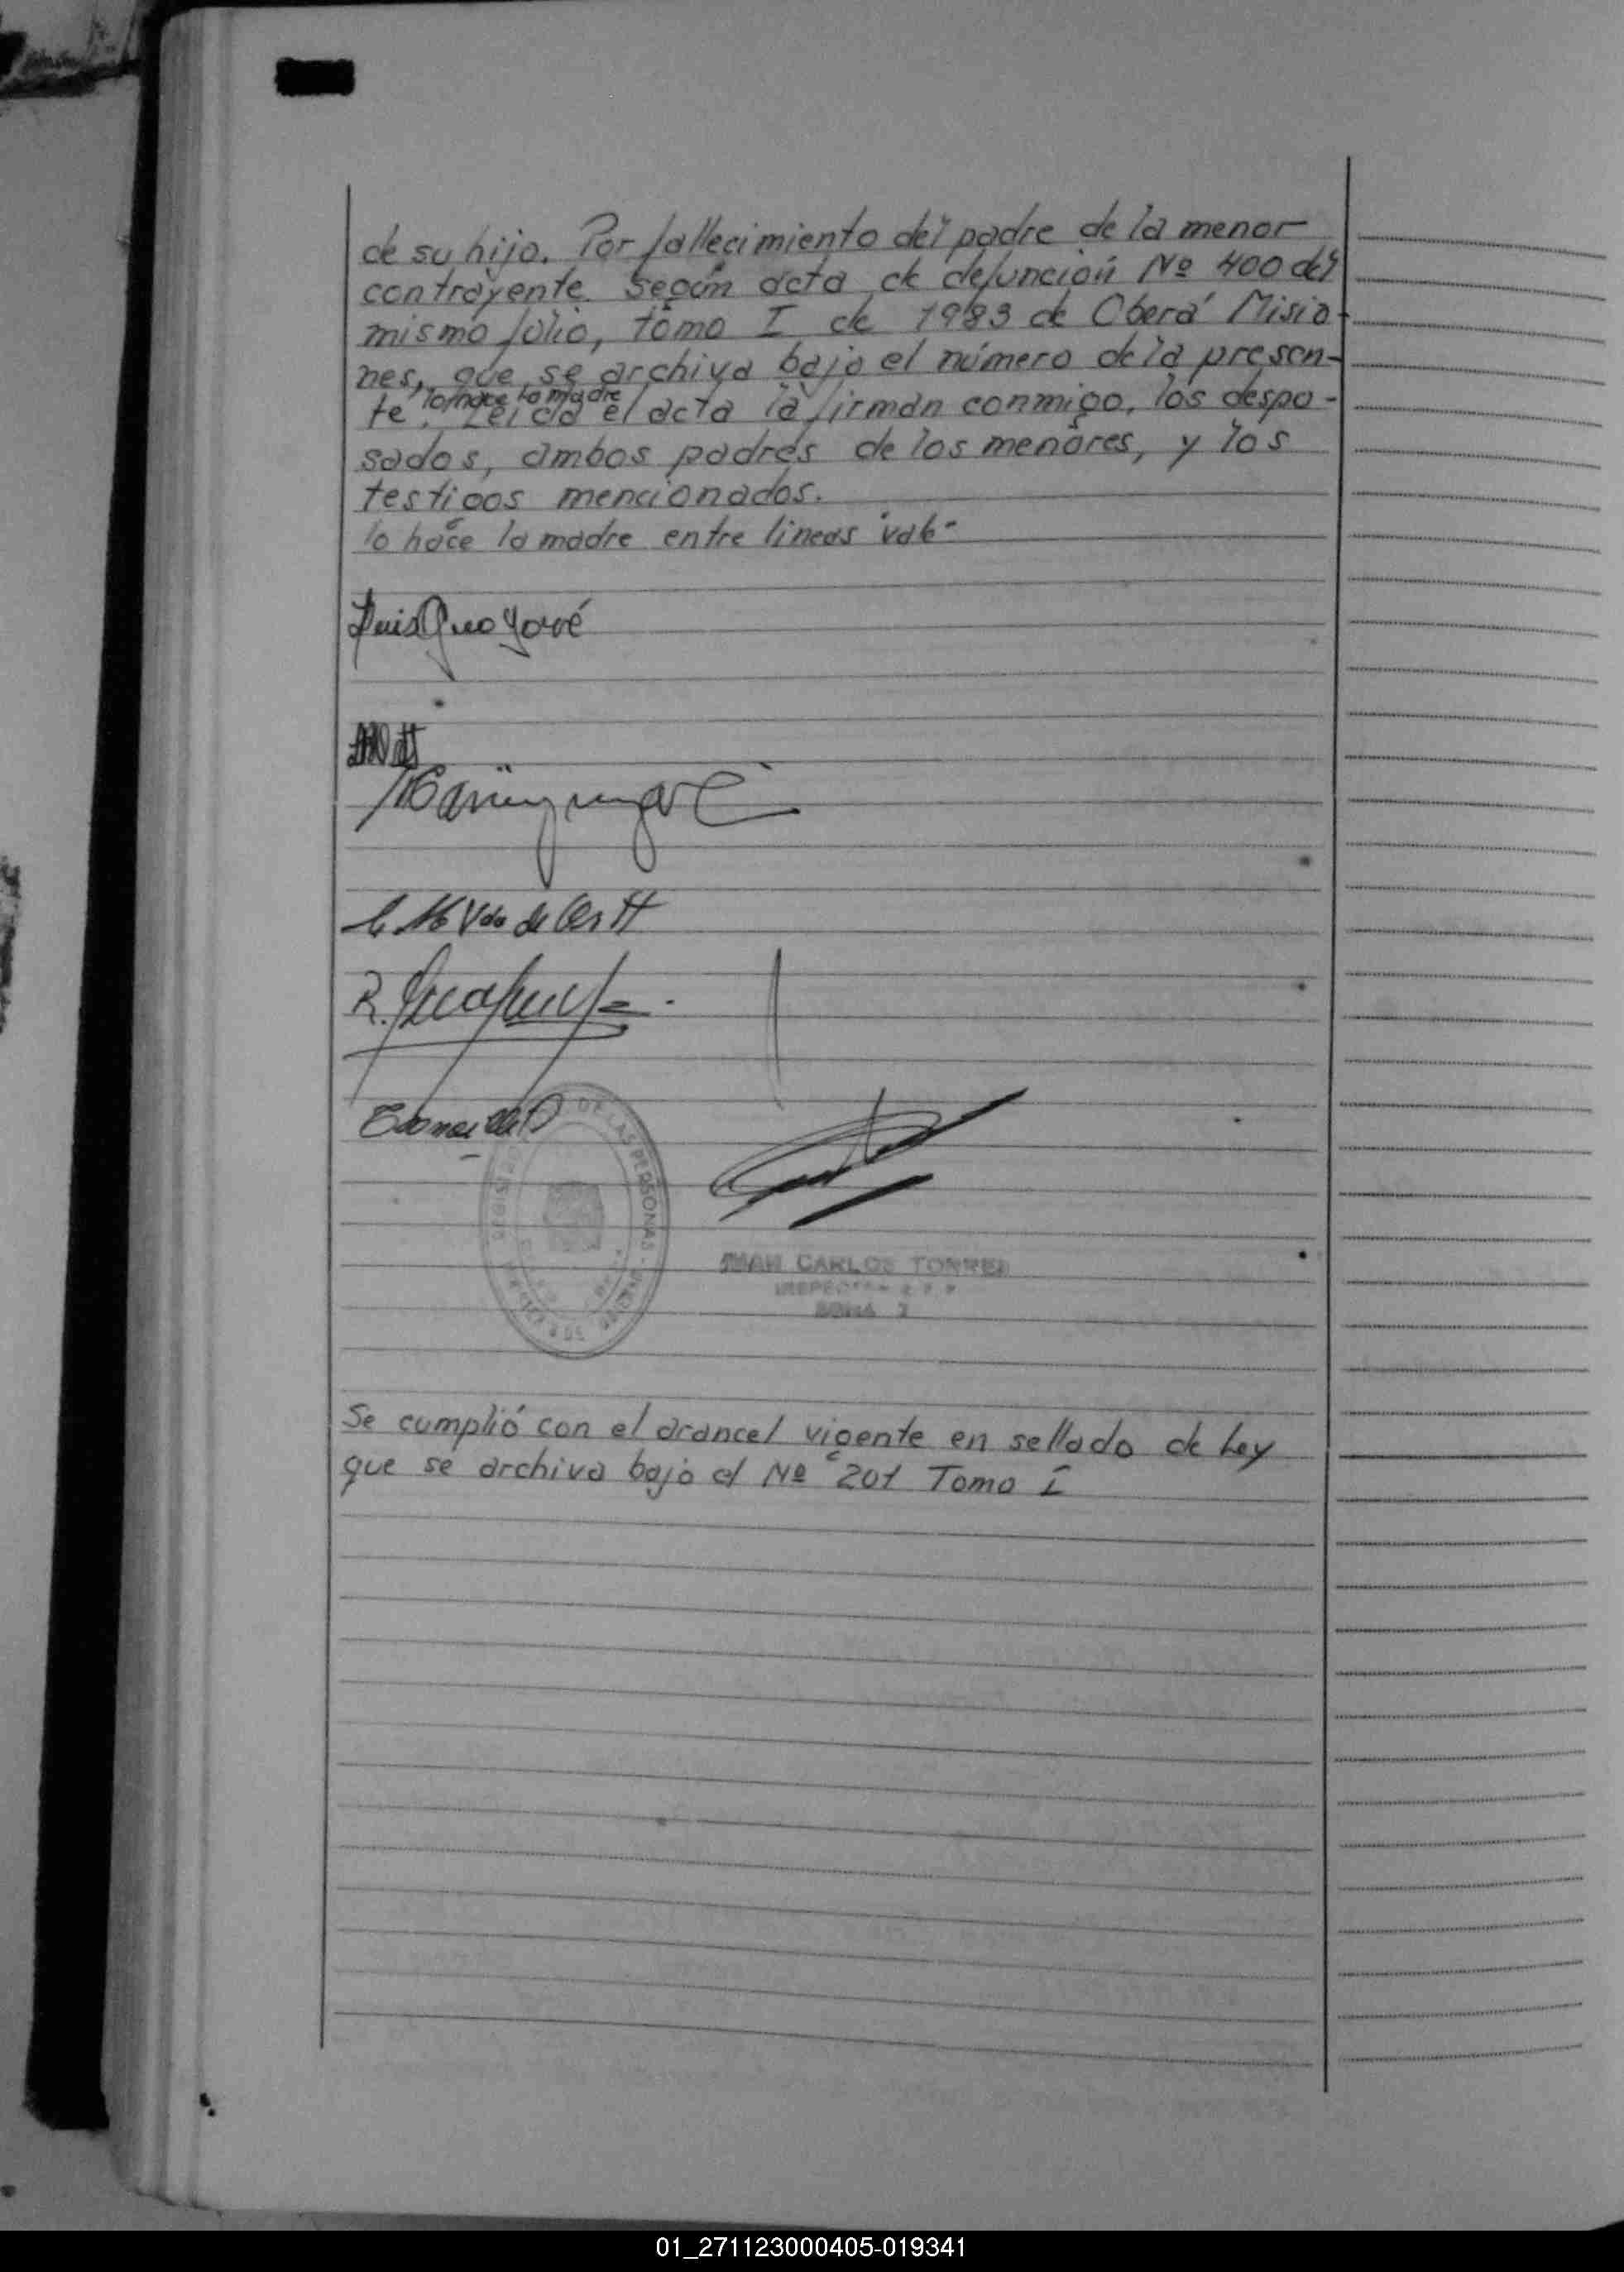 de su hijo. Por fallecimiento del padre de la menor
contrayente. Según acta de defunción Nº 400 del
mismo folio, tomo I de 1983 de Oberá Misio-
nes, que se archiva bajo el número de la presen-
lo hace la madre
te. Leída el acta la firman conmigo, los despo-
sados, ambos padres de los menores, y los
testigos mencionados.
lo hace la madre entre lineas vale-
Luis
Vda de
R.
DE LAS PERSONAS
JUAN CARLOS TORRES
INSPECTOR
ZONA
Se cumplió con el arancel vigente en sellado de Ley
que se archiva bajo el Nº 201 Tomo I
01_271123000405-019341